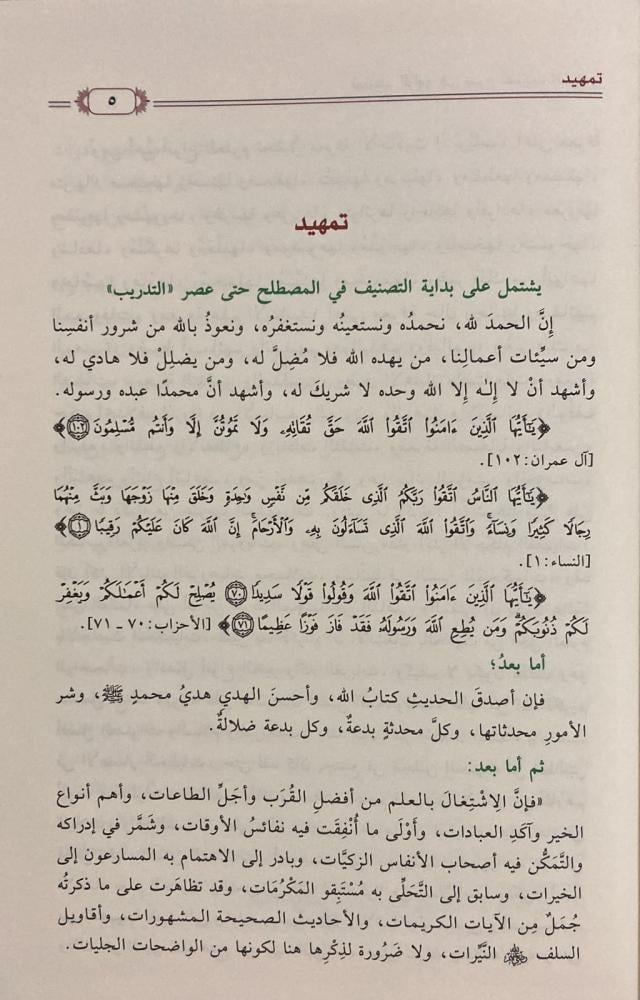 تمهيد
٥
تمهيد
يشتمل على بداية التصنيف في المصطلح حتى عصر «التدريب»
إنَّ الحمدَ لله، نحمدُه ونستعينُه ونستغفرُه، ونعوذُ بالله من شرور أنفسِنا
ومن سيِّئات أعمالِنا، من يهده الله فلا مُضِلَّ له، ومن يضلِلْ فلا هادي له،
وأشهد أنْ لا إِلـٰه إلا الله وحده لا شريكَ له، وأشهد أنَّ محمدًا عبده ورسوله.
﴿يَٰٓأَيُّهَا ٱلَّذِينَ ءَامَنُوا۟ ٱتَّقُوا۟ ٱللَّهَ حَقَّ تُقَاتِهِۦ وَلَا تَمُوتُنَّ إِلَّا وَأَنتُم مُّسْلِمُونَ ١٠٢﴾
[آل عمران: ١٠٢].
﴿يَٰٓأَيُّهَا ٱلنَّاسُ ٱتَّقُوا۟ رَبَّكُمُ ٱلَّذِى خَلَقَكُم مِّن نَّفْسٍ وَٰحِدَةٍ وَخَلَقَ مِنْهَا زَوْجَهَا وَبَثَّ مِنْهُمَا
رِجَالًا كَثِيرًا وَنِسَآءً ۚ وَٱتَّقُوا۟ ٱللَّهَ ٱلَّذِى تَسَآءَلُونَ بِهِۦ وَٱلْأَرْحَامَ ۚ إِنَّ ٱللَّهَ كَانَ عَلَيْكُمْ رَقِيبًا ١﴾
[النساء: ١].
﴿يَٰٓأَيُّهَا ٱلَّذِينَ ءَامَنُوا۟ ٱتَّقُوا۟ ٱللَّهَ وَقُولُوا۟ قَوْلًا سَدِيدًا ٧٠ يُصْلِحْ لَكُمْ أَعْمَٰلَكُمْ وَيَغْفِرْ
لَكُمْ ذُنُوبَكُمْ ۗ وَمَن يُطِعِ ٱللَّهَ وَرَسُولَهُۥ فَقَدْ فَازَ فَوْزًا عَظِيمًا ٧١﴾ [الأحزاب: ٧٠ ـ ٧١].
أما بعدُ؛
فإن أصدقَ الحديثِ كتابُ الله، وأحسنَ الهدي هديُ محمدٍ ﷺ، وشر
الأمورِ محدثاتها، وكلَّ محدثةٍ بدعةٌ، وكل بدعة ضلالةٌ.
ثم أما بعد:
«فإنَّ الاِشْتِغالَ بالعلم من أفضلِ القُرَب وأجَلِّ الطاعات، وأهم أنواع
الخير وآكَدِ العبادات، وأَوْلَى ما أُنْفِقَت فيه نفائسُ الأوقات، وشَمَّر في إدراكه
والتَّمَكُّن فيه أصحاب الأنفاس الزكيَّات، وبادر إلى الاهتمام به المسارعون إلى
الخيرات، وسابق إلى التَّحَلِّى به مُسْتَبِقو المَكْرُمَات، وقد تظاهَرت على ما ذكرتُه
جُمَلٌ مِن الآيات الكريمات، والأحاديث الصحيحة المشهورات، وأقاويل
السلف ﷺ النَّيِّرات، ولا ضَرُورة لذِكْرِها هنا لكونها من الواضحات الجليات.